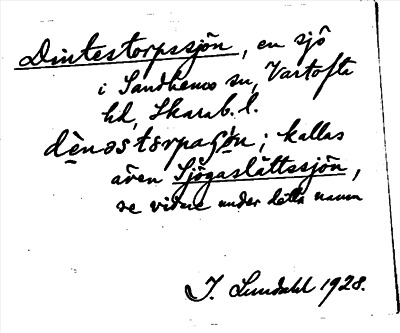 Dintestorpssjön, en sjö
i Sandhems sn, Vartofta
hd, Skarab. l.
dènəstərpaſɷ́n; kallas
även Sjögaslättssjön,
se vidare under detta namn
I. Lundahl 1928.